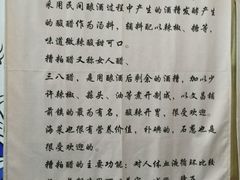 采用民间酿酒过程中产生的酒糟发酵产生
的酸醋作为汤料，辅料配以辣椒、糖等，
味道微辣酸甜可口。
糟粕醋又称女人醋。
三八醋，是用酿酒后剩余的酒糟，加以少
许辣椒、蒜头、油等煮开制成，以文昌铺
前镇的最为有名，酸辣开胃，很受欢迎。
海菜也很有营养价值，补碘的，石
很受欢迎的。
糟粕醋的主要功能，对人体血液循环比较